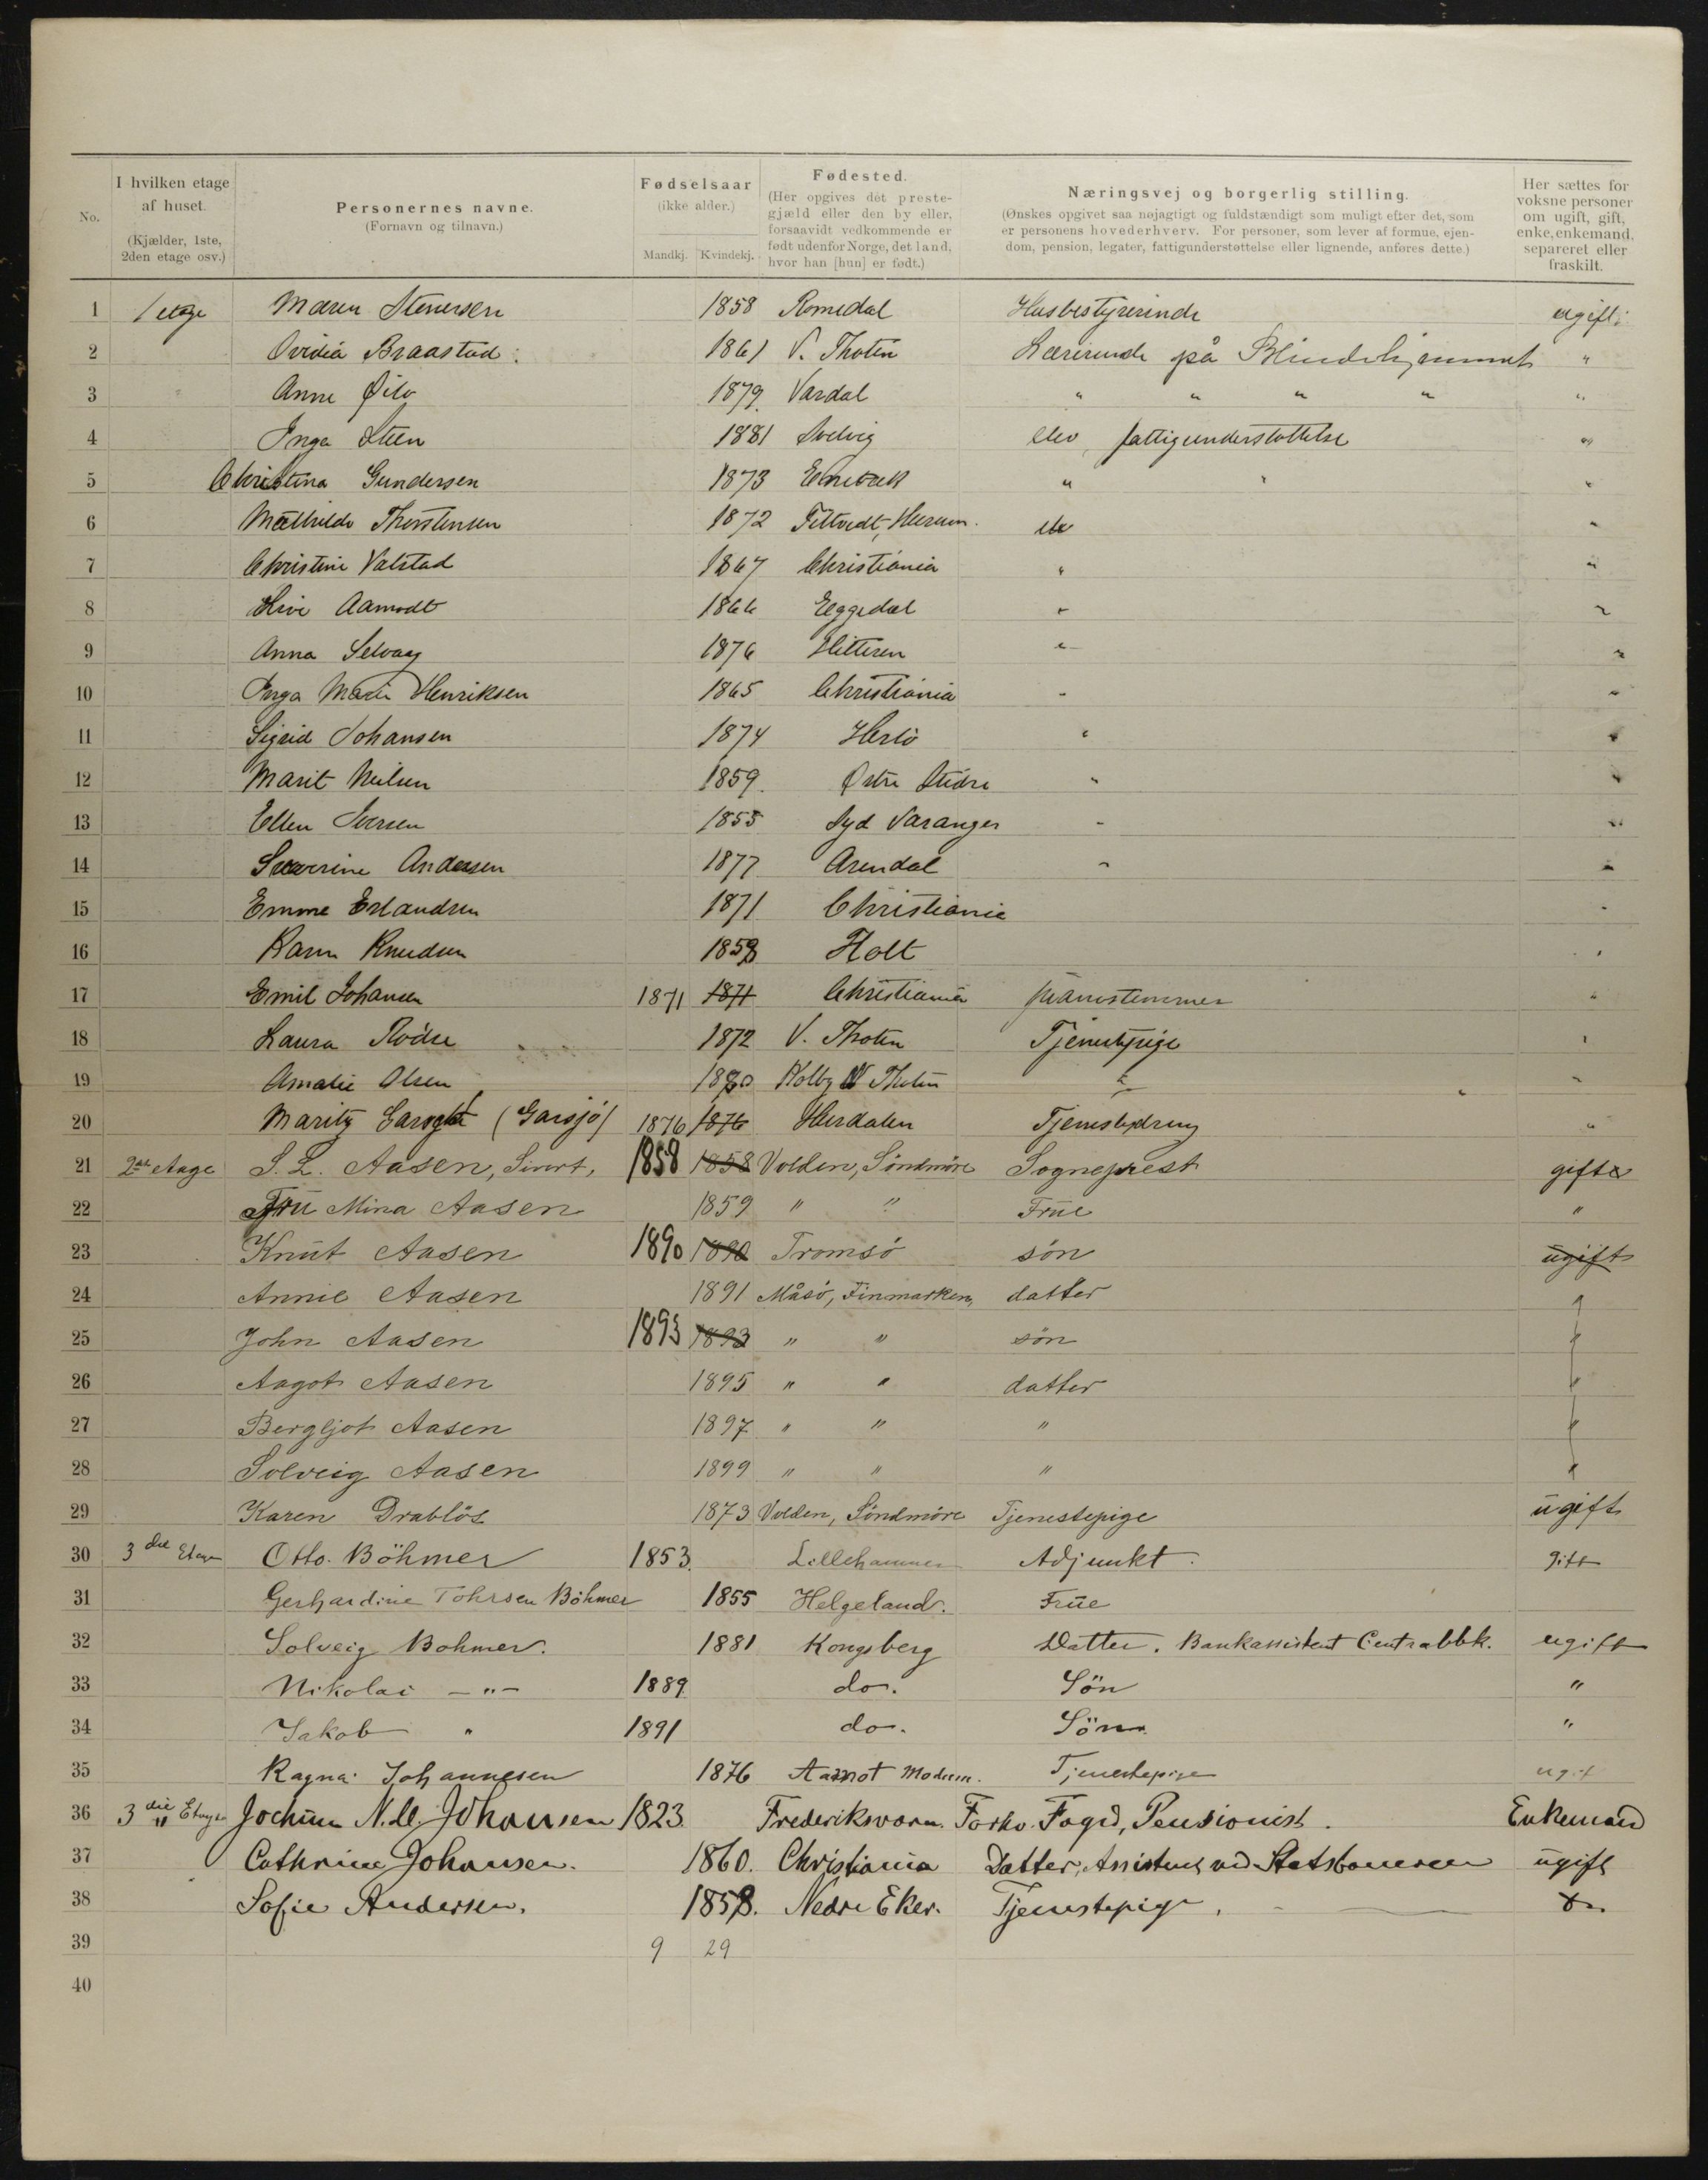 I hvilken etage af huset. (Kjælder, 1ste, 2den etage osv.)
No.
Personernes navne. (Fornavn og tilnavn.)
Fødselsaar (ikke alder.) Mandkj. Kvindekj.
Fødested. (Her opgives det prestegjæld eller den by eller, forsaavidt vedkommende er født udenfor Norge, det land, hvor han [hun] er født.)
Næringsvej og borgerlig stilling. (Ønskes opgivet saa nøjagtigt og fuldstændigt som muligt efter det, som er personens hovederhverv. For personer, som lever af formue, ejendom, pension, legater, fattigunderstøttelse eller lignende, anføres dette.)
Her sættes for voksne personer om ugift, gift, enke, enkemand, separeret eller fraskilt.
1 1 etage Maren Stenersen 1858 Romedal Husbestyrerinde ugift
2 Ovidia Braastad 1861 V. Thoten Lærerinde på Blindehjemmet "
3 Anne 1879 Vardal " " " " "
4 Inga Steen 1881 Svelvig elev, fattigunderstøttelse "
5 Christina Gundersen 1873 Enebak " " "
6 Mathilde Thorstensen 1872 Hurum elev "
7 Christine Valstad 1867 Christiania " "
8 Aamodt 1866 Eggedal " "
9 Anna Selvaag 1876 Hitteren " "
10 Inga Marie Henriksen 1865 Christiania " "
11 Sigrid Johansen 1874 Herlö " "
12 Marit Nilsen 1859. Østre Slidre " "
13 Ellen Iversen 1855 Syd Varanger " "
14 Severine Andersen 1877 Arendal " "
15 Emma Erlandsen 1871 Christiania "
16 Karen Knudsen 1858 Holt "
17 Emil Johansen 1871 1871 Christiania pianostemmer "
18 Laura Rödse 1872 V. Thoten Tjenestepige "
19 Amalie Olsen 1880 Kolby V Thoten " "
20 Marity (Garsjö) 1876 1876 Hurdalen Tjenestedreng "
21 2den etage S. L. Aasen, Sivert, 1858 1858 Volden, Söndmöre Sogneprest gift
22 Frü Mina Aasen 1859 " " Früe "
23 Knüt Aasen 1890 1890 Tromsö sön ügift
24 Annie Aasen 1891 Måsö, Finmarken, datter "
25 John Aasen 1893 1893 " " sön "
26 Aagot Aasen 1895 " " datter "
27 Bergljot Aasen 1897 " " " "
28 Solveig Aasen 1899 " " " "
29 Karen Drablös 1873 Volden, Söndmöre Tjenestepige ügift
30 3die Etage Otto Böhmer 1853. Lillehammer Adjunkt. gift
31 Gerhardine Tohrsen Böhmer 1855 Helgeland. Früe
32 Solveig Bohmer. 1881 Kongsberg Datter. Bankassistent Centralbk. ugift
33 Nikolai — " — 1889 do. Sön "
34 Jakob " 1891 do. Sön "
35 Ragna Johannesen 1876 Aamot Modum. Tjenestepige ugift
36 3die Etage Jochüm N. Johansen 1823. Frederiksværn. Forhv. Foged, Pensionist. Enkemand
37 Cathrine Johansen. 1860. Christiania Datter, Assistent ved Statsbanerne ügift
38 Sofie Andersen. 1858. Nedre Eker. Tjenestepige. do
39 9 29
40